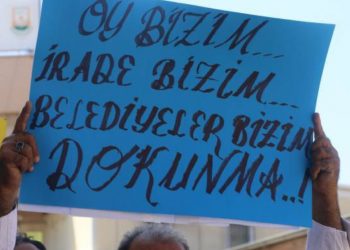 OY BİZİM...
İRADE BİZİM...
BELEDİYELER BİZİM
DOKUNMA..!